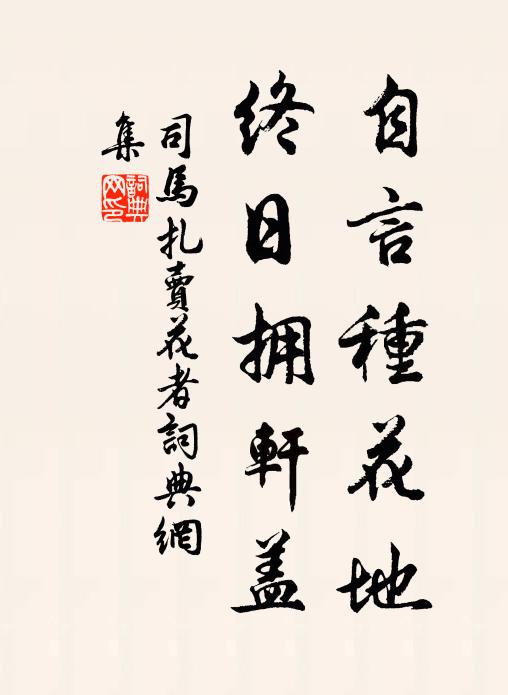 自言種花地
終日拥軒盖
司馬扎賣花者詞典網
集
詞典網印